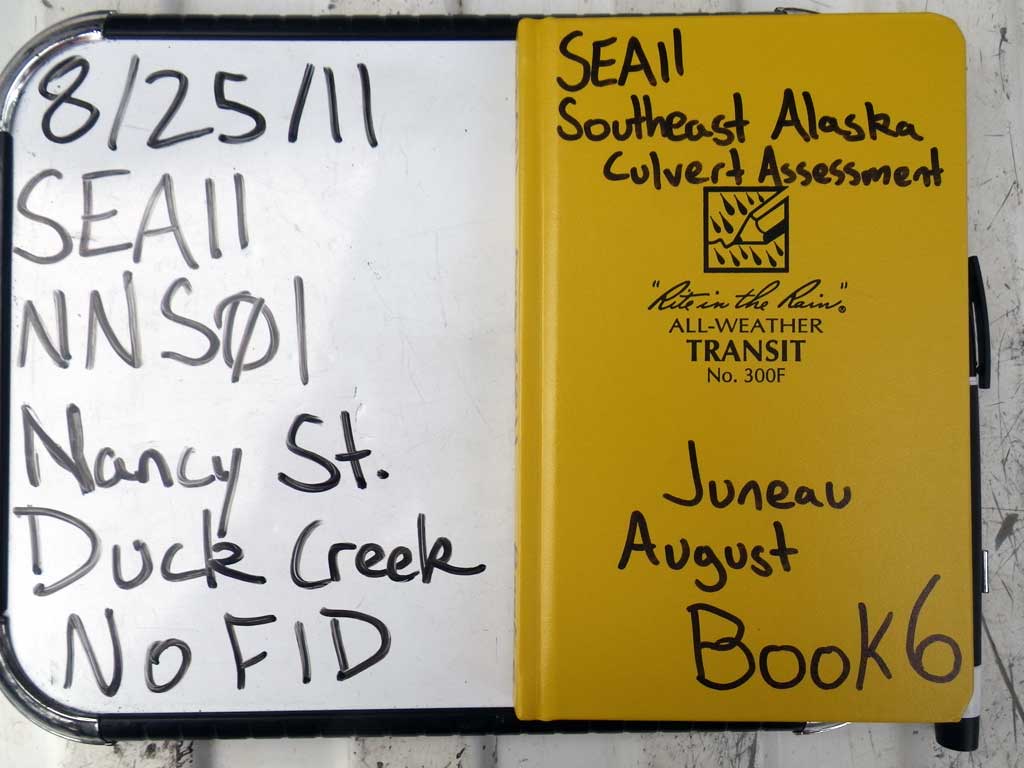 8/25/11
SEA11
NNSØ1
Nancy St.
Duck Creek
No FID
SEA11
Southeast Alaska
Culvert Assessment
"Rite in the Rain"®
ALL-WEATHER
TRANSIT
No. 300F
Juneau
August
Book 6